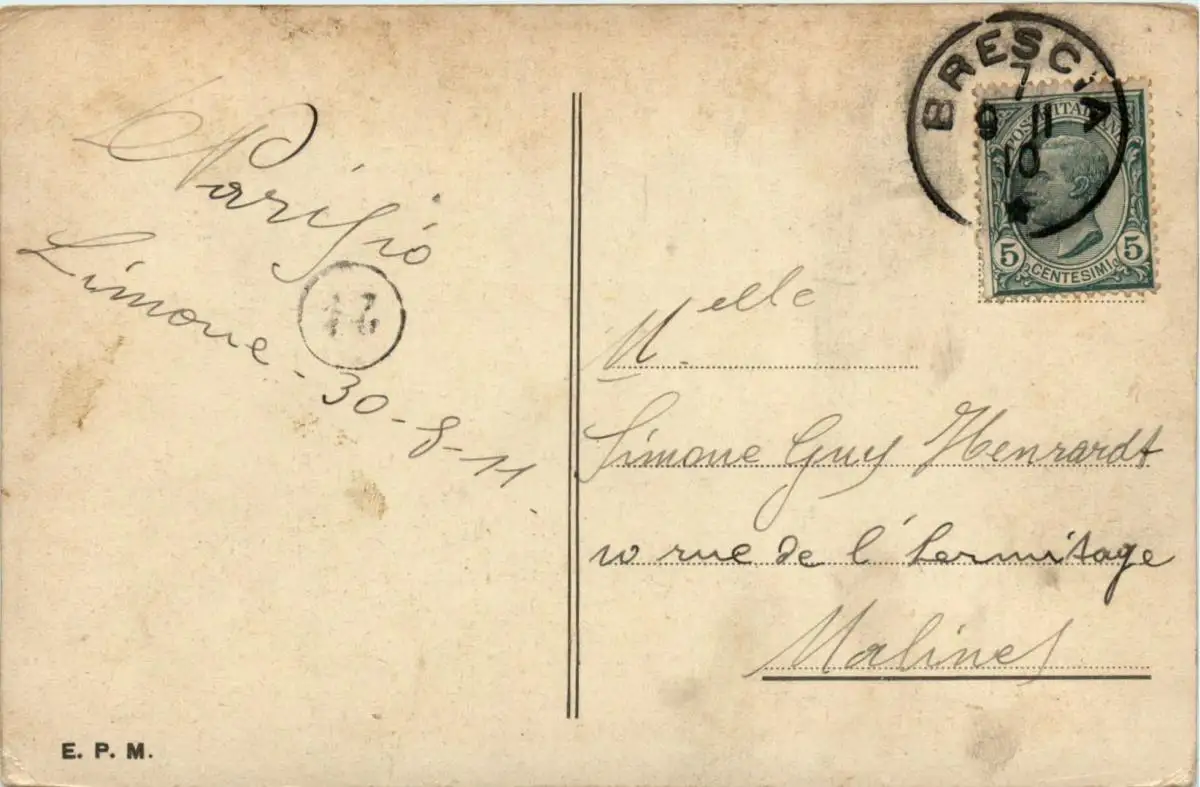 BRESCIA
7
9 11
10
POSTE ITALIANE
5 CENTESIMI 5
Parisio
Limone - 30-8-11
Melle
Simone Guy Henrardt
10 rue de l'hermitage
Malines
E. P. M.